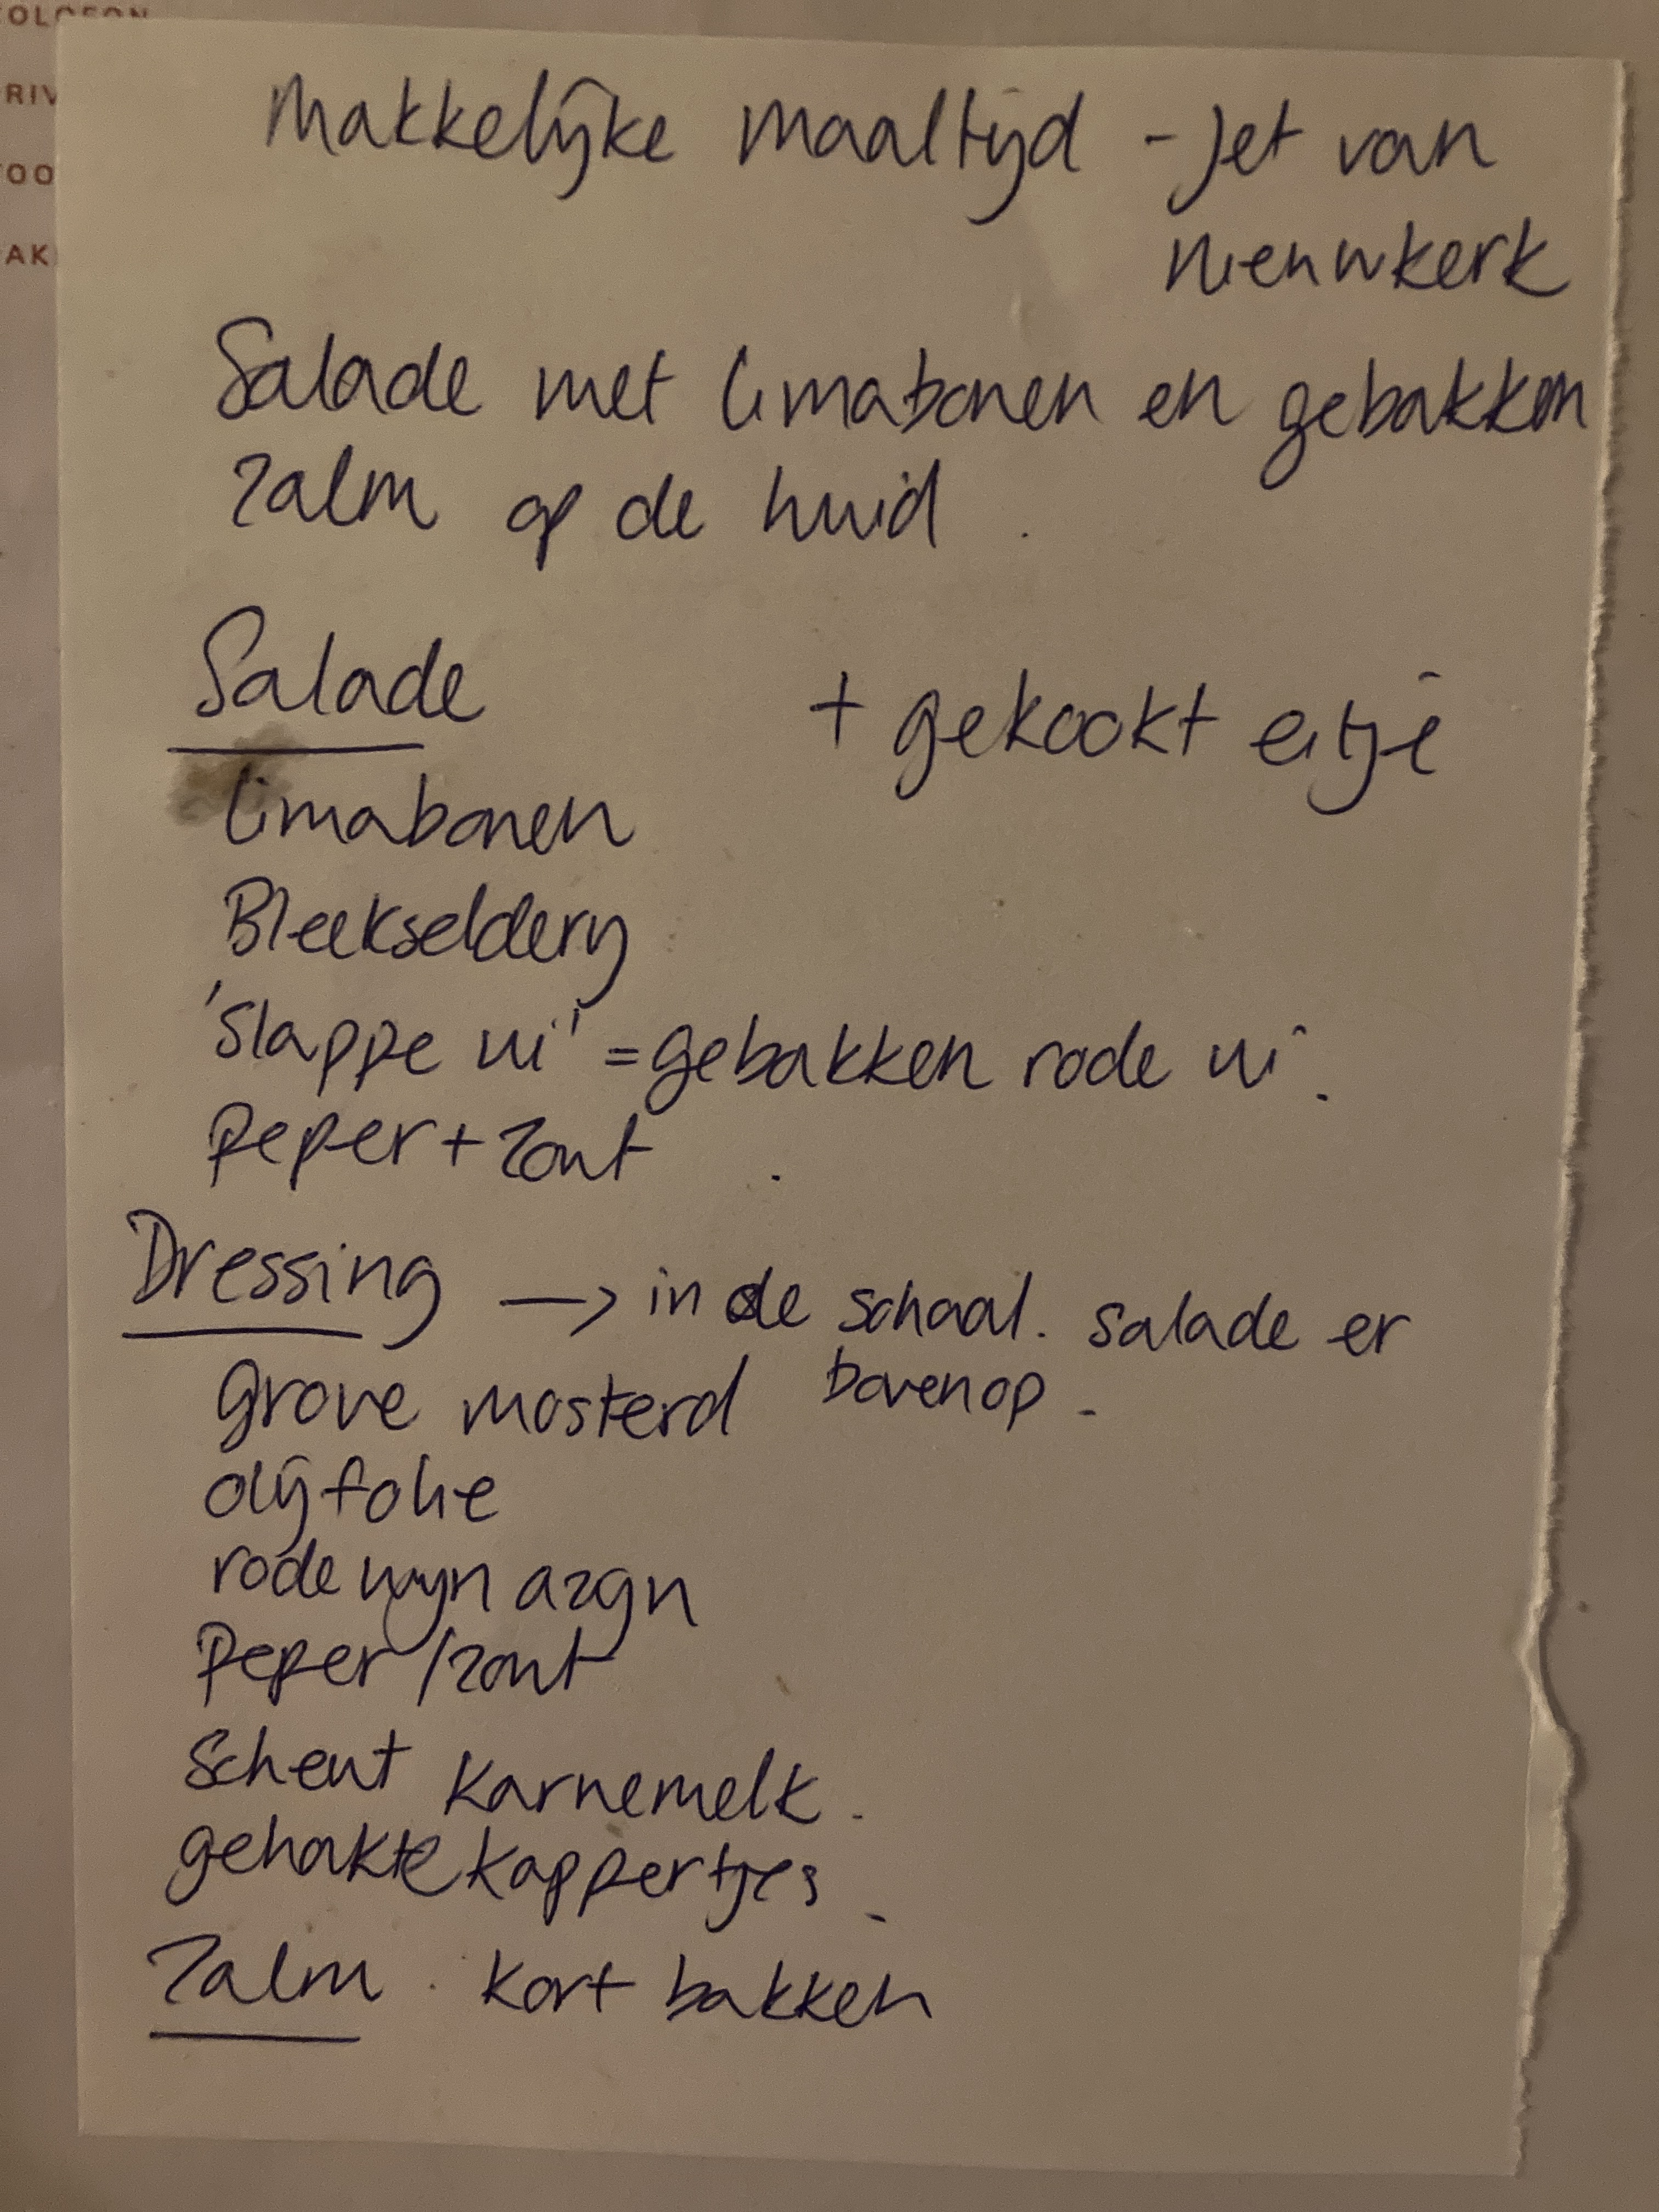 OLOFON
RIV
OO
AK
Makkelijke maaltijd - Jet van
Nieuwkerk
Salade met limabonen en gebakken
zalm op de huid.
Salade + gekookt eitje
limabonen
Bleekselderij
'slappe ui' = gebakken rode ui.
Peper + zout.
Dressing → in de schaal. salade er
bovenop.
grove mosterd
olijfolie
rode wijn azijn
Peper / zout
scheut karnemelk.
gehakte kappertjes.
Zalm. kort bakken